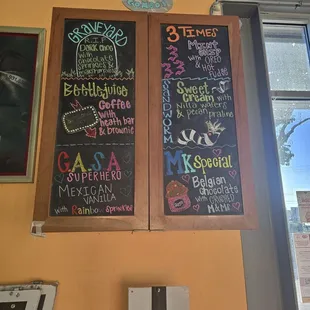 GRAVEYARD
R.I.P
Dark Choc
with
Chocolate
Sprinkles
Beetlejuice
Coffee
with
heath bar
& brownie
GASA
SUPERHERO
MEXICAN
VANILLA
with Rainbow Sprinkles
3 TIMES
3
3
3
with OREO
& Hot
Fudge
SANDWORM
Sweet
Cream with
Nilla wafers
& pecan
praline
MK Special
Belgian
Chocolate
with
M&Ms